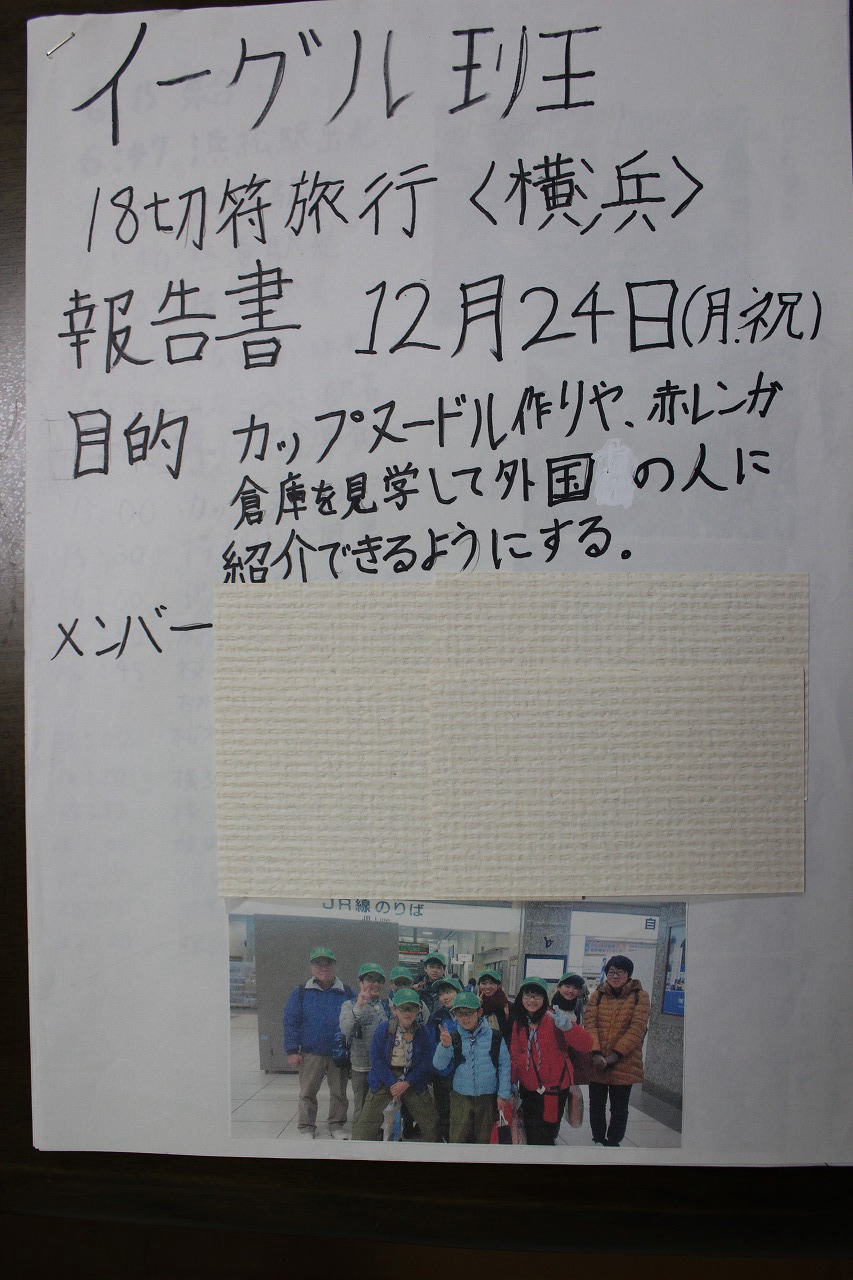 イーグル班
18切符旅行〈横浜〉
報告書 12月24日(月.祝)
目的 カップヌードル作りや、赤レンガ
倉庫を見学して外国の人に
紹介できるようにする。
メンバー
JR線のりば
自